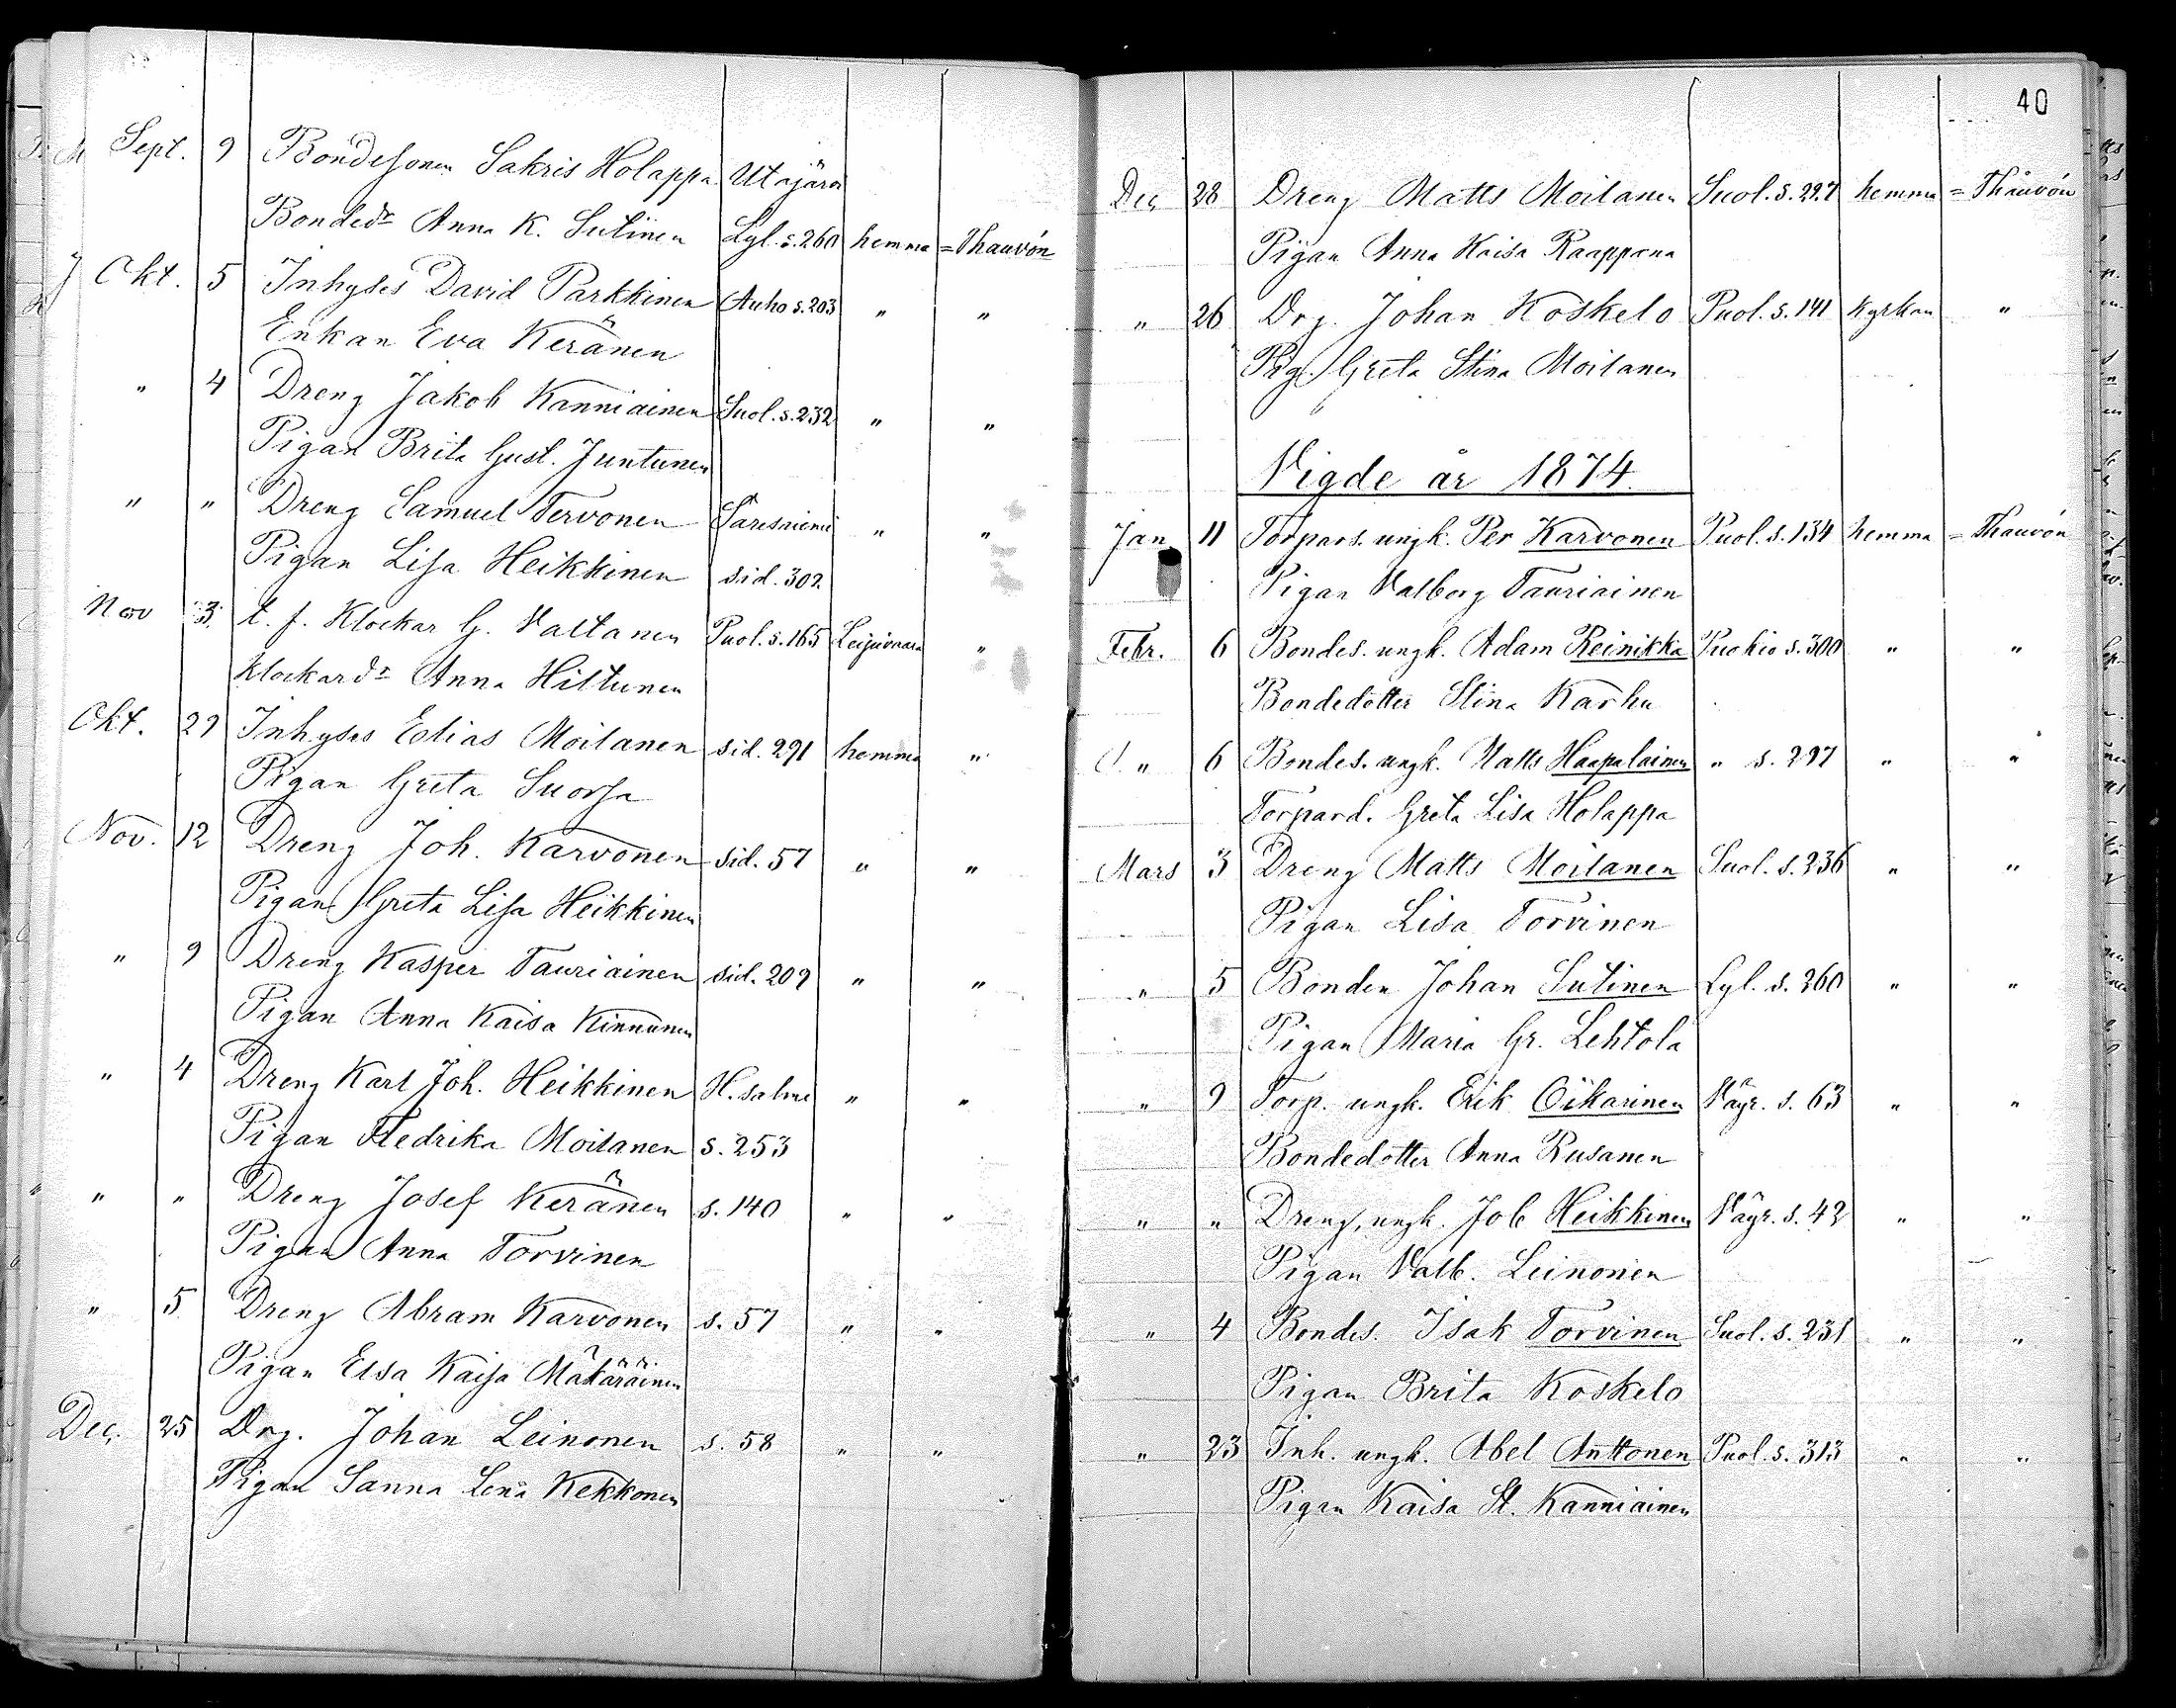 Sept. 9 Bondesonen Sakris Holappa Utajärvi
Bondedr Anna K. Sutinen Lyl. s. 260 hemma = Thauvón
Okt. 5 Inhyses David Parkkinen Auho s. 203 " "
Enkan Eva Keränen
" 4 Dreng Jakob Kanniainen Suol. s. 232 " "
Pigan Brita Gust. Juntunen
" " Dreng Samuel Tervonen Säresniemi " "
Pigan Lisa Heikkinen sid. 302
Nov 3. t. f. Klockar G. Valtanen Puol. s. 165 Leipivaara "
Klockardr Anna Hiltunen
Okt. 29 Inhyses Elias Moilanen sid. 291 hemma "
Pigan Greta Suorsa
Nov. 12 Dreng Joh. Karvonen sid. 57 " "
Pigan Greta Lisa Heikkinen
" 9 Dreng Kasper Tauriainen sid. 209 " "
Pigan Anna Kaisa Kinnunen
" 4 Dreng Karl Joh. Heikkinen H. salmi " "
Pigan Fredrika Moilanen s. 253
" " Dreng Josef Keränen s. 140 " "
Pigan Anna Torvinen
" 5 Dreng Abram Karvonen s. 57 " "
Pigan Elsa Kaisa Mäkäräinen
Dec. 25 Drg. Johan Leinonen s. 58 " "
Pigan Sanna Lena Kekkonen
40
Dec 28 Dreng Matts Moilanen Suol. s. 227 hemma = Thauvón
Pigan Anna Kaisa Raappana
" 26 Drg. Johan Koskelo Puol. s. 141 Kyrkan "
Pig. Greta Stina Moilanen
Vigde år 1874.
Jan. 11 Torpars. ungk. Per Karvonen Puol. s. 134 hemma = Thauvón
Pigan Valborg Tauriainen
Febr. 6 Bondes. ungk. Adam Reinikka Puokio s. 300 " "
Bondedotter Stina Karhu
" 6 Bondes. ungk. Matts Haapalainen " s. 297 " "
Torpard. Greta Lisa Holappa
Mars 3 Dreng Matts Moilanen Suol. s. 236 " "
Pigan Lisa Torvinen
" 5 Bonden Johan Sutinen Lyl. s. 260 " "
Pigan Maria Gr. Lehtola
" 9 Torp. ungk. Erik Oikarinen Väyr. s. 63 " "
Bondedotter Anna Rusanen
" " Dreng, ungk. Job Heikkinen Väyr. s. 42 " "
Pigan Valb. Leinonen
" 4 Bondes. Isak Torvinen Suol. s. 231 " "
Pigan Brita Koskelo
" 23 Inh. ungk. Abel Anttonen Puol. s. 313 " "
Pigan Kaisa St. Kanniainen